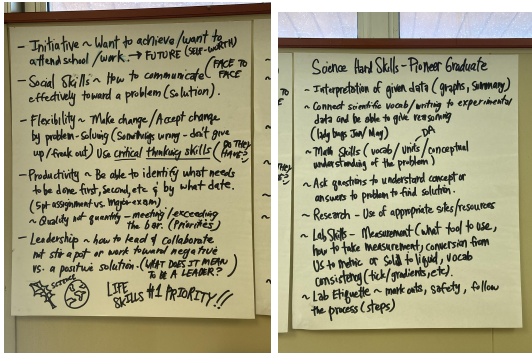 - Initiative ~ Want to achieve/want to
attend school/work. → FUTURE (SELF-WORTH)
- Social Skills ~ How to communicate (FACE TO FACE
effectively toward a problem (solution).
- Flexibility ~ Make change/Accept change
by problem-solving (Somethings wrong - don't give
up/freak out) Use critical thinking skills (DO THEY HAVE?)
- Productivity ~ Be able to identify what needs
to be done first, second, etc & by what date.
(5pt-assignment vs. major-exam)
~ Quality not quantity - meeting/exceeding
the bar. (Priorities)
- Leadership ~ how to lead & collaborate
not stir a pot or work toward negative
vs. a positive solution. (WHAT DOES IT MEAN
TO BE A LEADER?)
SCIENCE
LIFE SKILLS #1 PRIORITY!!
Science Hard Skills - Pioneer Graduate
~ Interpretation of given data (graphs, summary)
~ Connect scientific vocab/writing to experimental
data and be able to give reasoning
(lady bugs Jan/May)
DA
~ Math Skills (vocab/units/conceptual
understanding of the problem)
~ Ask questions to understand concept or
answers to problem to find solution.
~ Research - Use of appropriate sites/resources
~ Lab Skills - Measurement (what tool to use,
how to take measurement, conversion from
US to metric or solid to liquid, vocab
consistency (tick/gradients, etc).
~ Lab Etiquette ~ mark outs, safety, follow
the process (steps)